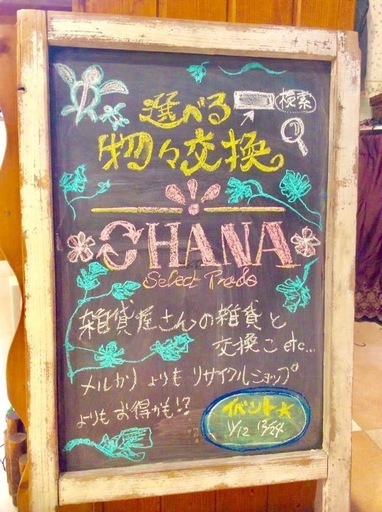 選べる 検索
物々交換
OHANA
Select Trade
雑貨屋さんの雑貨と
交換こ etc...
メルカリよりも リサイクルショップ
よりもお得かも!?
イベント☆
11/12 12/24